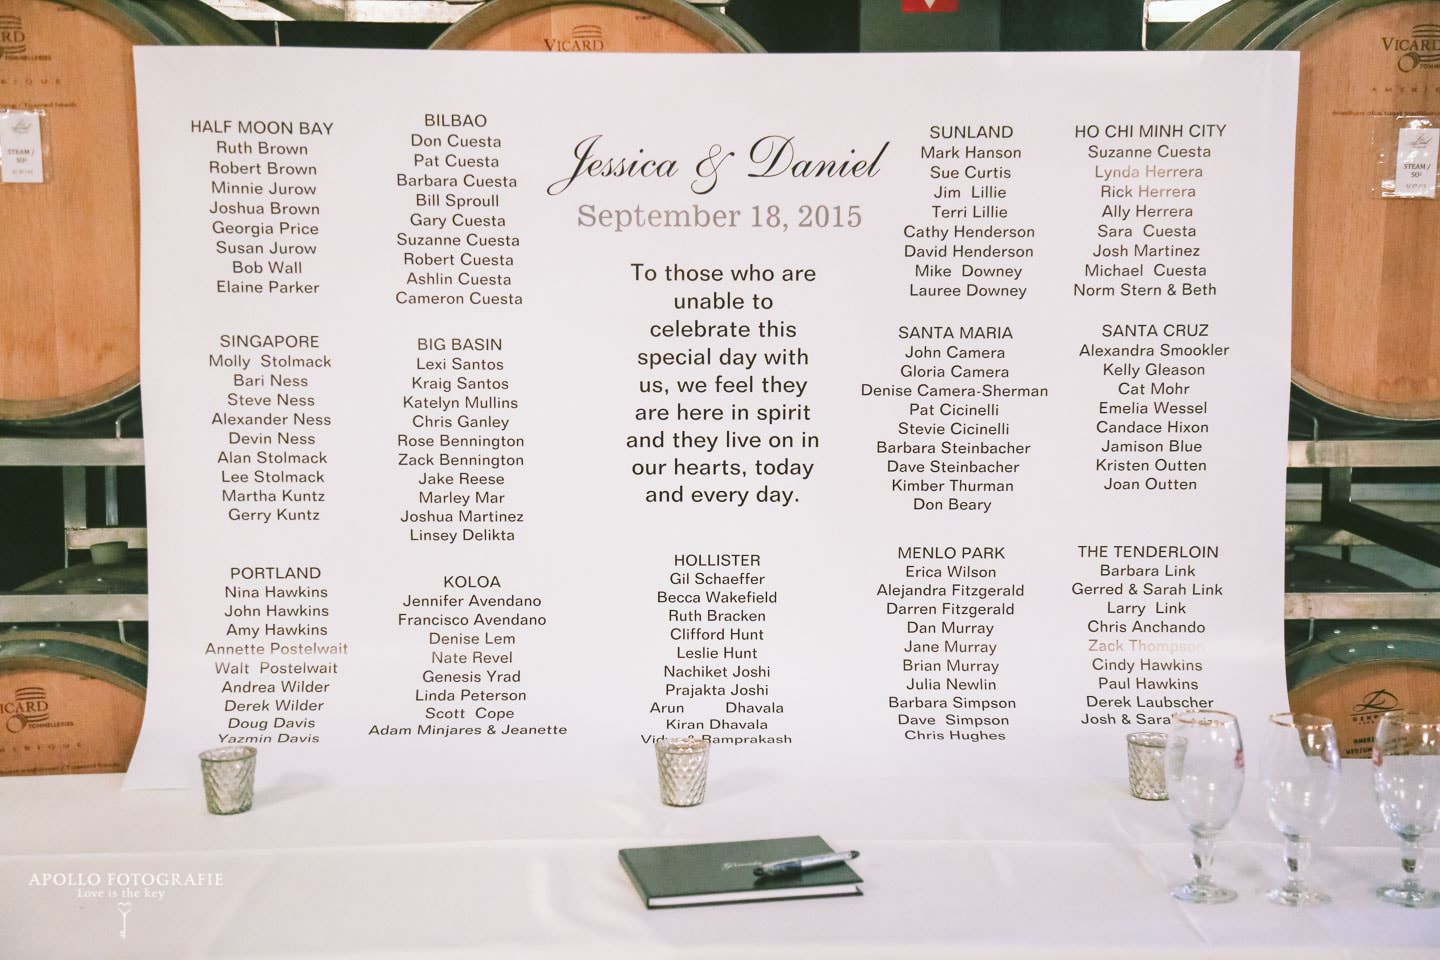 VICARD
VICARD
TONNELLERIES
STEAM /
STEAM /
HALF MOON BAY
Ruth Brown
Robert Brown
Minnie Jurow
Joshua Brown
Georgia Price
Susan Jurow
Bob Wall
Elaine Parker
BILBAO
Don Cuesta
Pat Cuesta
Barbara Cuesta
Bill Sproull
Gary Cuesta
Suzanne Cuesta
Robert Cuesta
Ashlin Cuesta
Cameron Cuesta
Jessica & Daniel
September 18, 2015
To those who are
unable to
celebrate this
special day with
us, we feel they
are here in spirit
and they live on in
our hearts, today
and every day.
SUNLAND
Mark Hanson
Sue Curtis
Jim Lillie
Terri Lillie
Cathy Henderson
David Henderson
Mike Downey
Lauree Downey
HO CHI MINH CITY
Suzanne Cuesta
Lynda Herrera
Rick Herrera
Ally Herrera
Sara Cuesta
Josh Martinez
Michael Cuesta
Norm Stern & Beth
SINGAPORE
Molly Stolmack
Bari Ness
Steve Ness
Alexander Ness
Devin Ness
Alan Stolmack
Lee Stolmack
Martha Kuntz
Gerry Kuntz
BIG BASIN
Lexi Santos
Kraig Santos
Katelyn Mullins
Chris Ganley
Rose Bennington
Zack Bennington
Jake Reese
Marley Mar
Joshua Martinez
Linsey Delikta
SANTA MARIA
John Camera
Gloria Camera
Denise Camera-Sherman
Pat Cicinelli
Stevie Cicinelli
Barbara Steinbacher
Dave Steinbacher
Kimber Thurman
Don Beary
SANTA CRUZ
Alexandra Smookler
Kelly Gleason
Cat Mohr
Emelia Wessel
Candace Hixon
Jamison Blue
Kristen Outten
Joan Outten
PORTLAND
Nina Hawkins
John Hawkins
Amy Hawkins
Annette Postelwait
Walt Postelwait
Andrea Wilder
Derek Wilder
Doug Davis
Yazmin Davis
KOLOA
Jennifer Avendano
Francisco Avendano
Denise Lem
Nate Revel
Genesis Yrad
Linda Peterson
Scott Cope
Adam Minjares & Jeanette
HOLLISTER
Gil Schaeffer
Becca Wakefield
Ruth Bracken
Clifford Hunt
Leslie Hunt
Nachiket Joshi
Prajakta Joshi
Arun Dhavala
Kiran Dhavala
& Ramprakash
MENLO PARK
Erica Wilson
Alejandra Fitzgerald
Darren Fitzgerald
Dan Murray
Jane Murray
Brian Murray
Julia Newlin
Barbara Simpson
Dave Simpson
Chris Hughes
THE TENDERLOIN
Barbara Link
Gerred & Sarah Link
Larry Link
Chris Anchando
Zack Thompson
Cindy Hawkins
Paul Hawkins
Derek Laubscher
Josh & Sarah
APOLLO FOTOGRAFIE
Love is the key